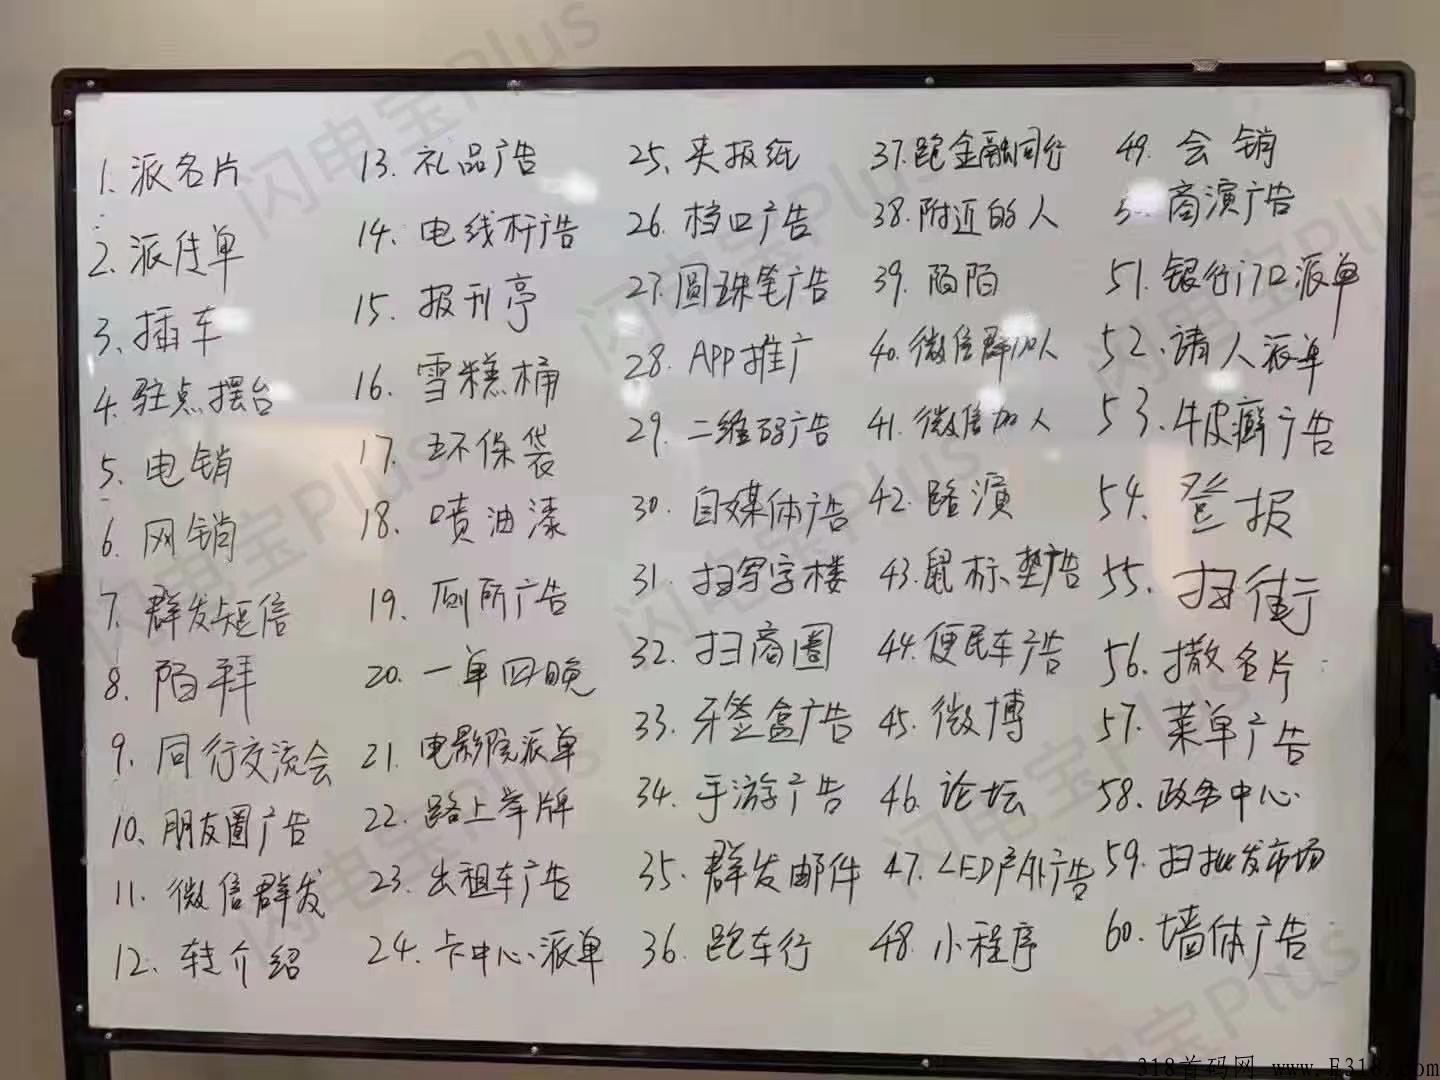 1. 派名片
2. 派传单
3、插车
4. 驻点摆台
5. 电销
6. 网销
7. 群发短信
8. 陌拜
9. 同行交流会
10、朋友圈广告
11. 微信群发
12. 转介绍
13. 礼品广告
14、电线杆广告
15、报刊亭
16、雪糕桶
17. 环保袋
18. 喷油漆
19、厕所广告
20. 一单四晚
21. 电影院派单
22. 路上举牌
23. 出租车广告
24. 卡中心派单
25. 夹报纸
26. 档口广告
27. 圆珠笔广告
28. APP推广
29. 二维码广告
30. 自媒体广告
31. 扫写字楼
32. 扫商圈
33. 牙签盒广告
34. 手游广告
35. 群发邮件
36. 跑车行
37. 跑金融同行
38. 附近的人
39. 陌陌
40. 微信群加人
41. 微信加人
42. 路演
43. 鼠标垫广告
44. 便民车广告
45. 微博
46. 论坛
47. LED户外广告
48. 小程序
49. 会销
商演广告
51. 银行门口派单
52. 请人派单
53. 牛皮癣广告
54. 登报
55. 扫街
56. 撒名片
57. 菜单广告
58. 政务中心
59. 扫批发市场
60. 墙体广告
闪电宝Plus
闪电宝Plus
闪电宝Plus
闪电宝Plus
闪电宝Plus
闪电宝Plus
闪电宝Plus
318首码网 www.E318.com